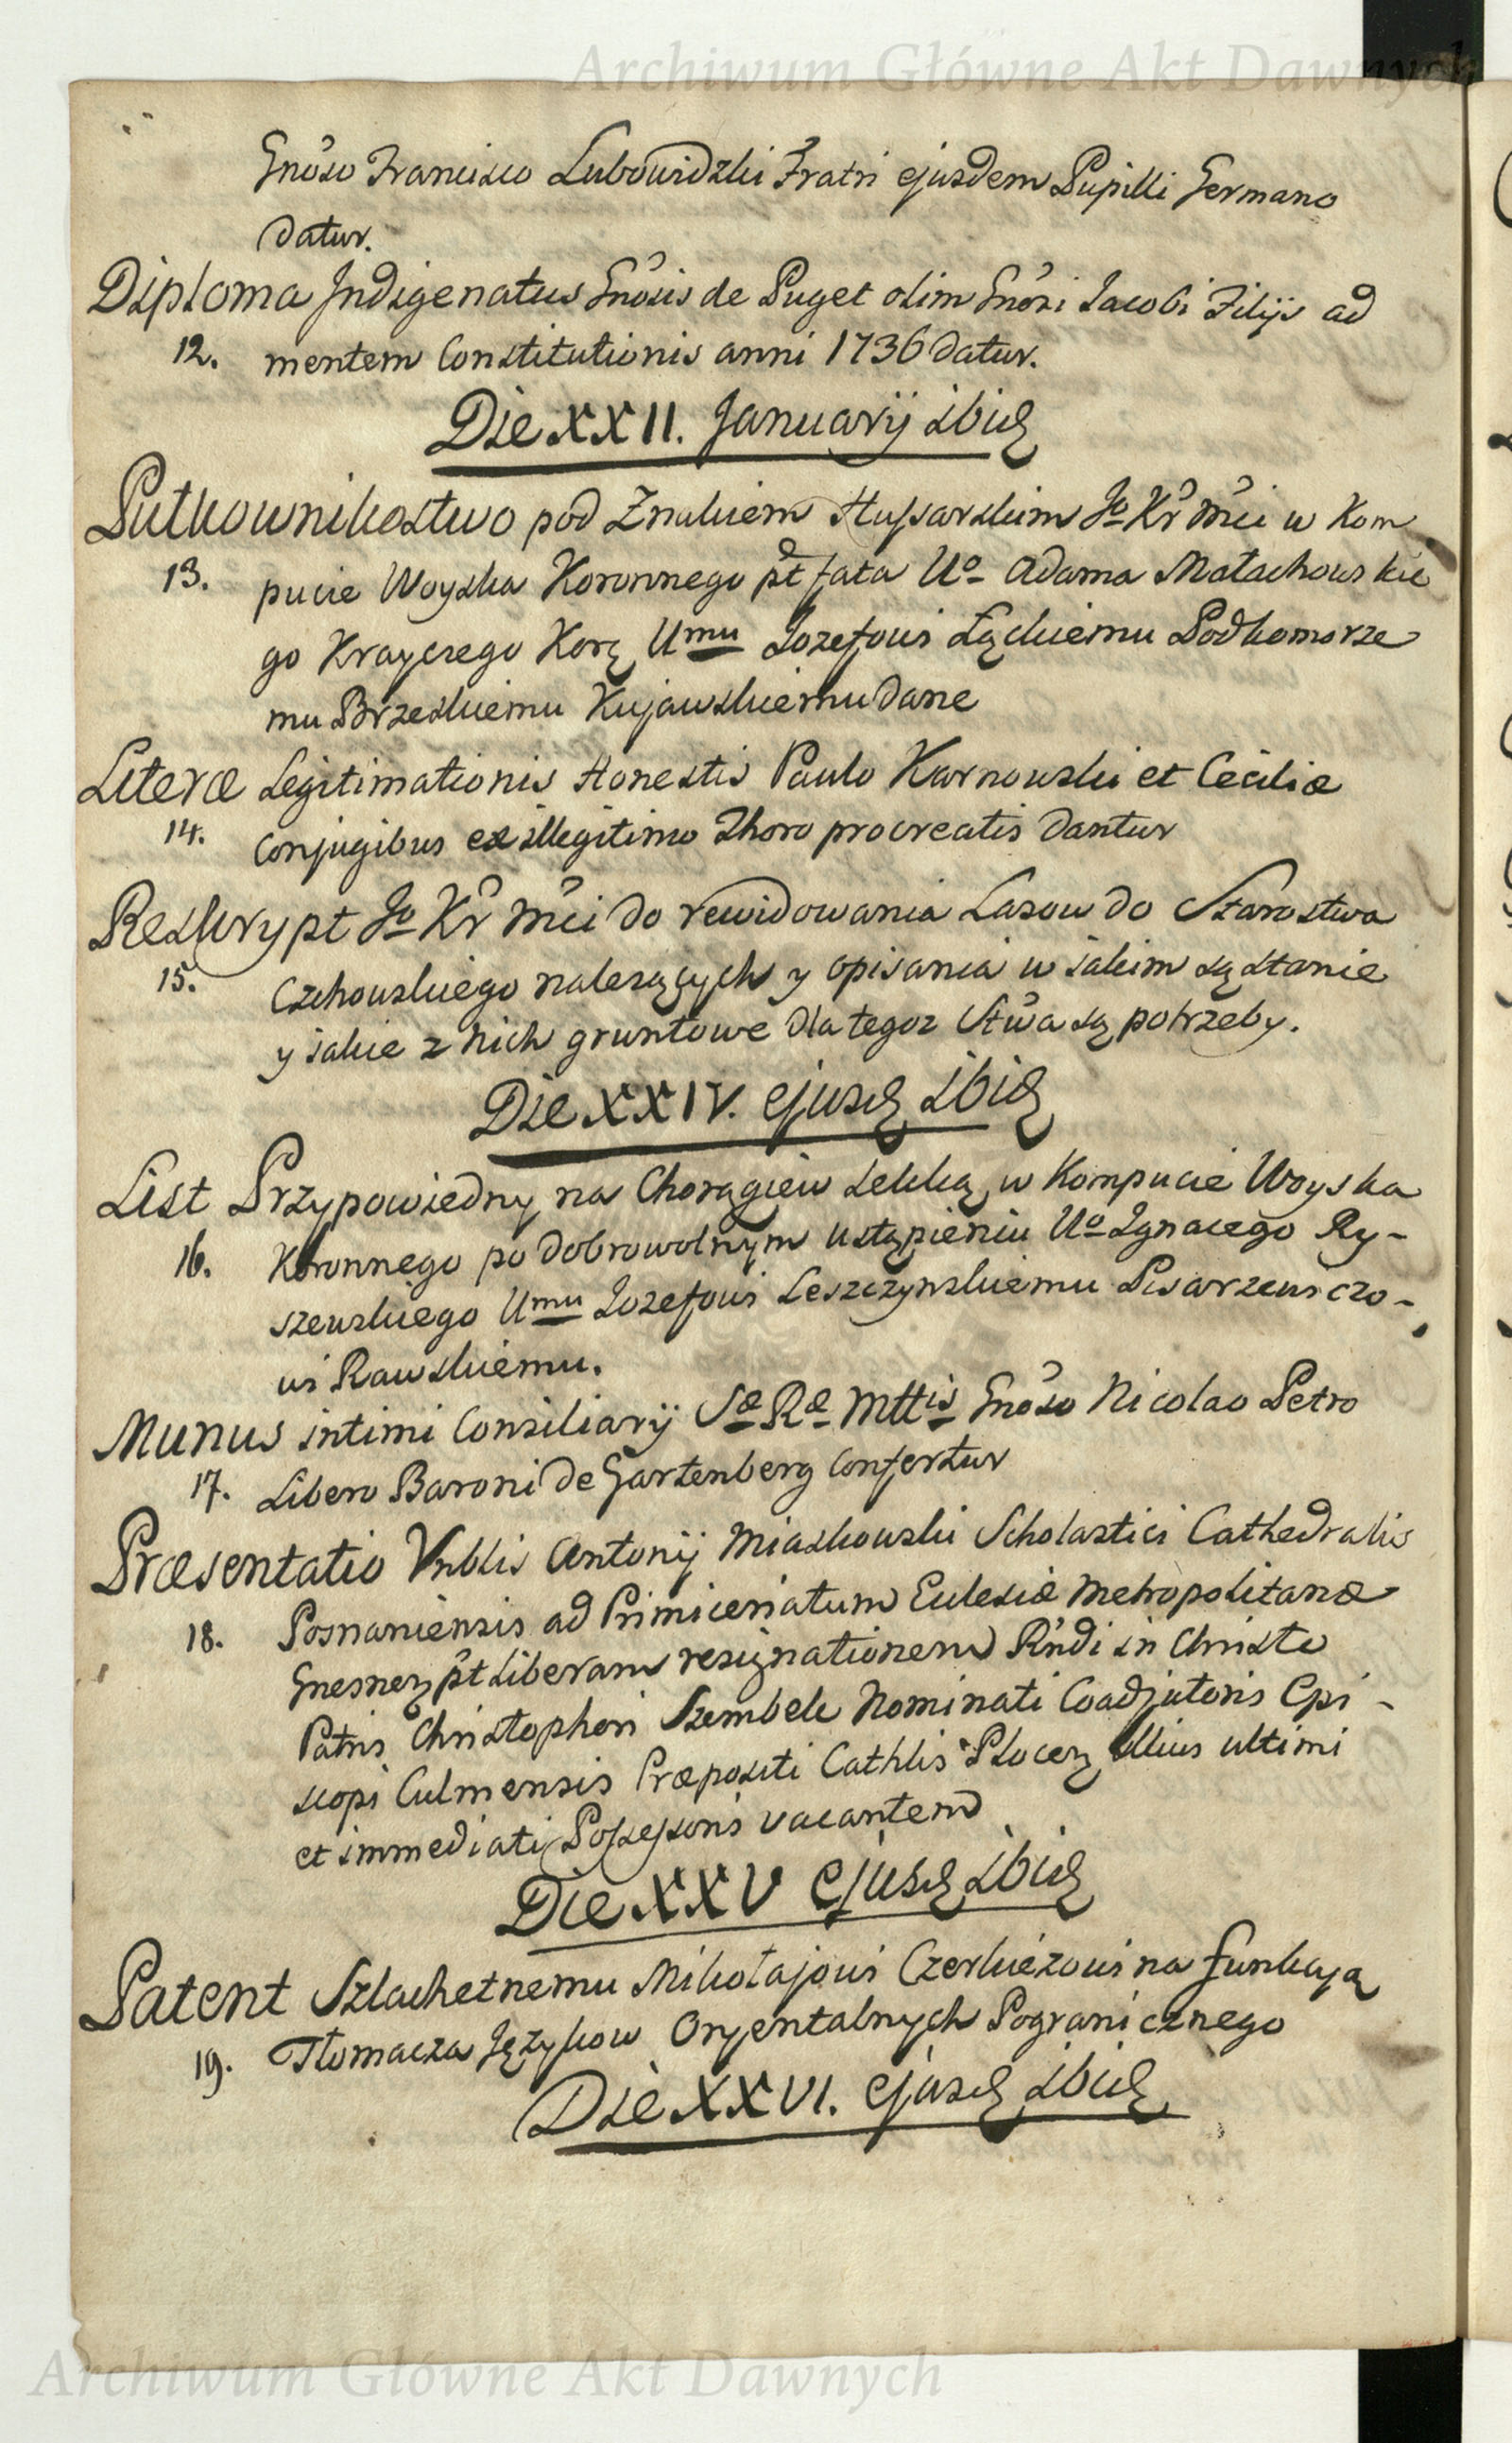 Archiwum Główne Akt Dawnych
Gnoso Francisco Lubowidzki Fratri ejusdem Pupilli Germano
datur.
Diploma Indigenatus Gnosis de Puget olim Gnosi Iacobi Filijs ad
12. mentem Constitutionis anni 1736 datur.
Die XXII. Januarij ibid
Pułkownikostwo pod Znakiem Hussarskim Jo Kr Mci w Kom
13. pucie Woyska Koronnego pt fata Uo Adama Małachowskie
go Krayczego Kor Umu Iozefowi Łąckiemu Podkomorze
mu Brzeskiemu Kujawskiemu dane
Literæ Legitimationis Honestis Paulo Karnowski et Ceciliæ
14. Conjugibus ex illegitimo Thoro procreatis dantur
Reskrypt Jo Kr Mci do rewidowania Lasow do Starostwa
15. Czchowskiego nalezących y opisania w iakim są stanie
y iakie z nich gruntowe dla tegoz Stwa są potrzeby.
Die XXIV. ejusd ibid
List Przypowiedny na Chorągiew Lekką w Kompucie Woyska
16. Koronnego po dobrowolnym ustąpieniu Uo Ignacego Ry-
szewskiego Umu Iozefowi Leszczynskiemu Pisarzewiczo-
wi Rawskiemu.
Munus intimi Consiliarij Sæ Ræ Mttis Gnoso Nicolao Petro
17. Libero Baroni de Gartenberg Confertur
Præsentatio Vnblis Antonij Miaskowski Scholastici Cathedralis
18. Posnaniensis ad Primiceriatum Eclesiæ Metropolitanæ
Gnesnen pt Liberam resignationem Rndi in Christo
Patris Christophori Szembek Nominati Coadjutoris Epi-
scopi Culmensis Præpositi Cathlis Plocen illius ultimi
et immediati Possessoris vacantem
Die XXV ejusd ibid
Patent Szlachetnemu Mikołajowi Czerkiezowi na funkcyą
19. Tłomacza Językow Oryentalnych Pogranicznego
Die XXVI. ejusd ibid
Archiwum Główne Akt Dawnych